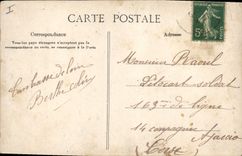 I
CARTE POSTALE
Correspondance
Adresse
Tous les pays étrangers n'acceptent pas la
correspondance au recto. (Se renseigner à la Poste).
T'embrasse de loin
Berthe
Monsieur Raoul
soldat
163me de ligne
14 compagnie Ajaccio
Corse
5c